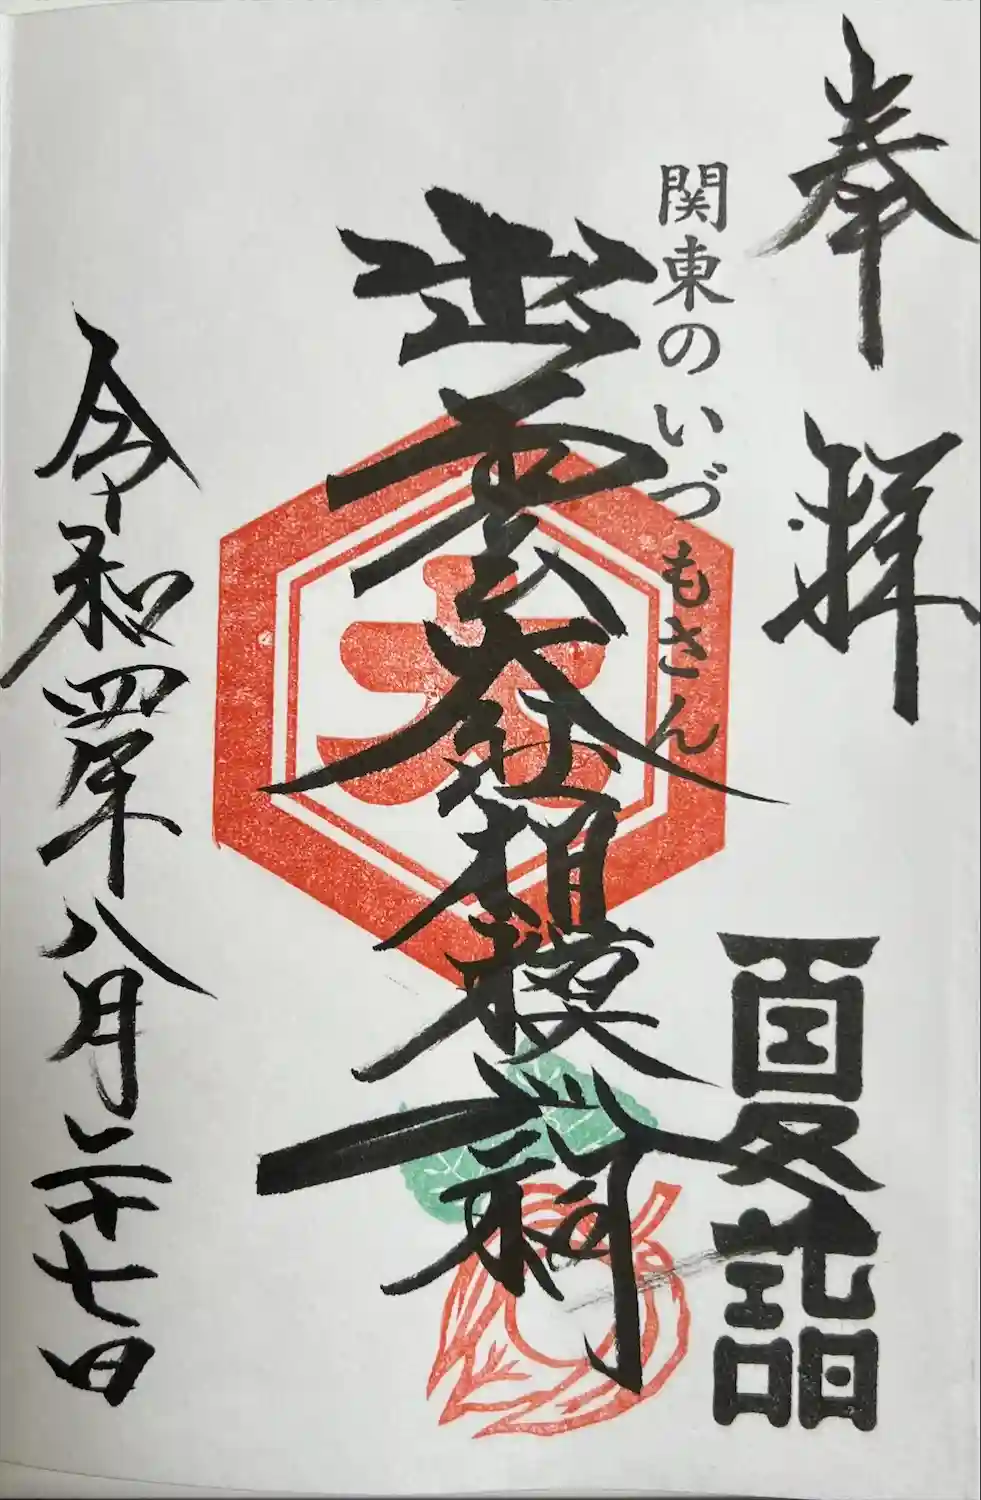 奉拝
関東のいづもさん
夏詣
出雲大社相模分祠
大
令和四年八月二十七日